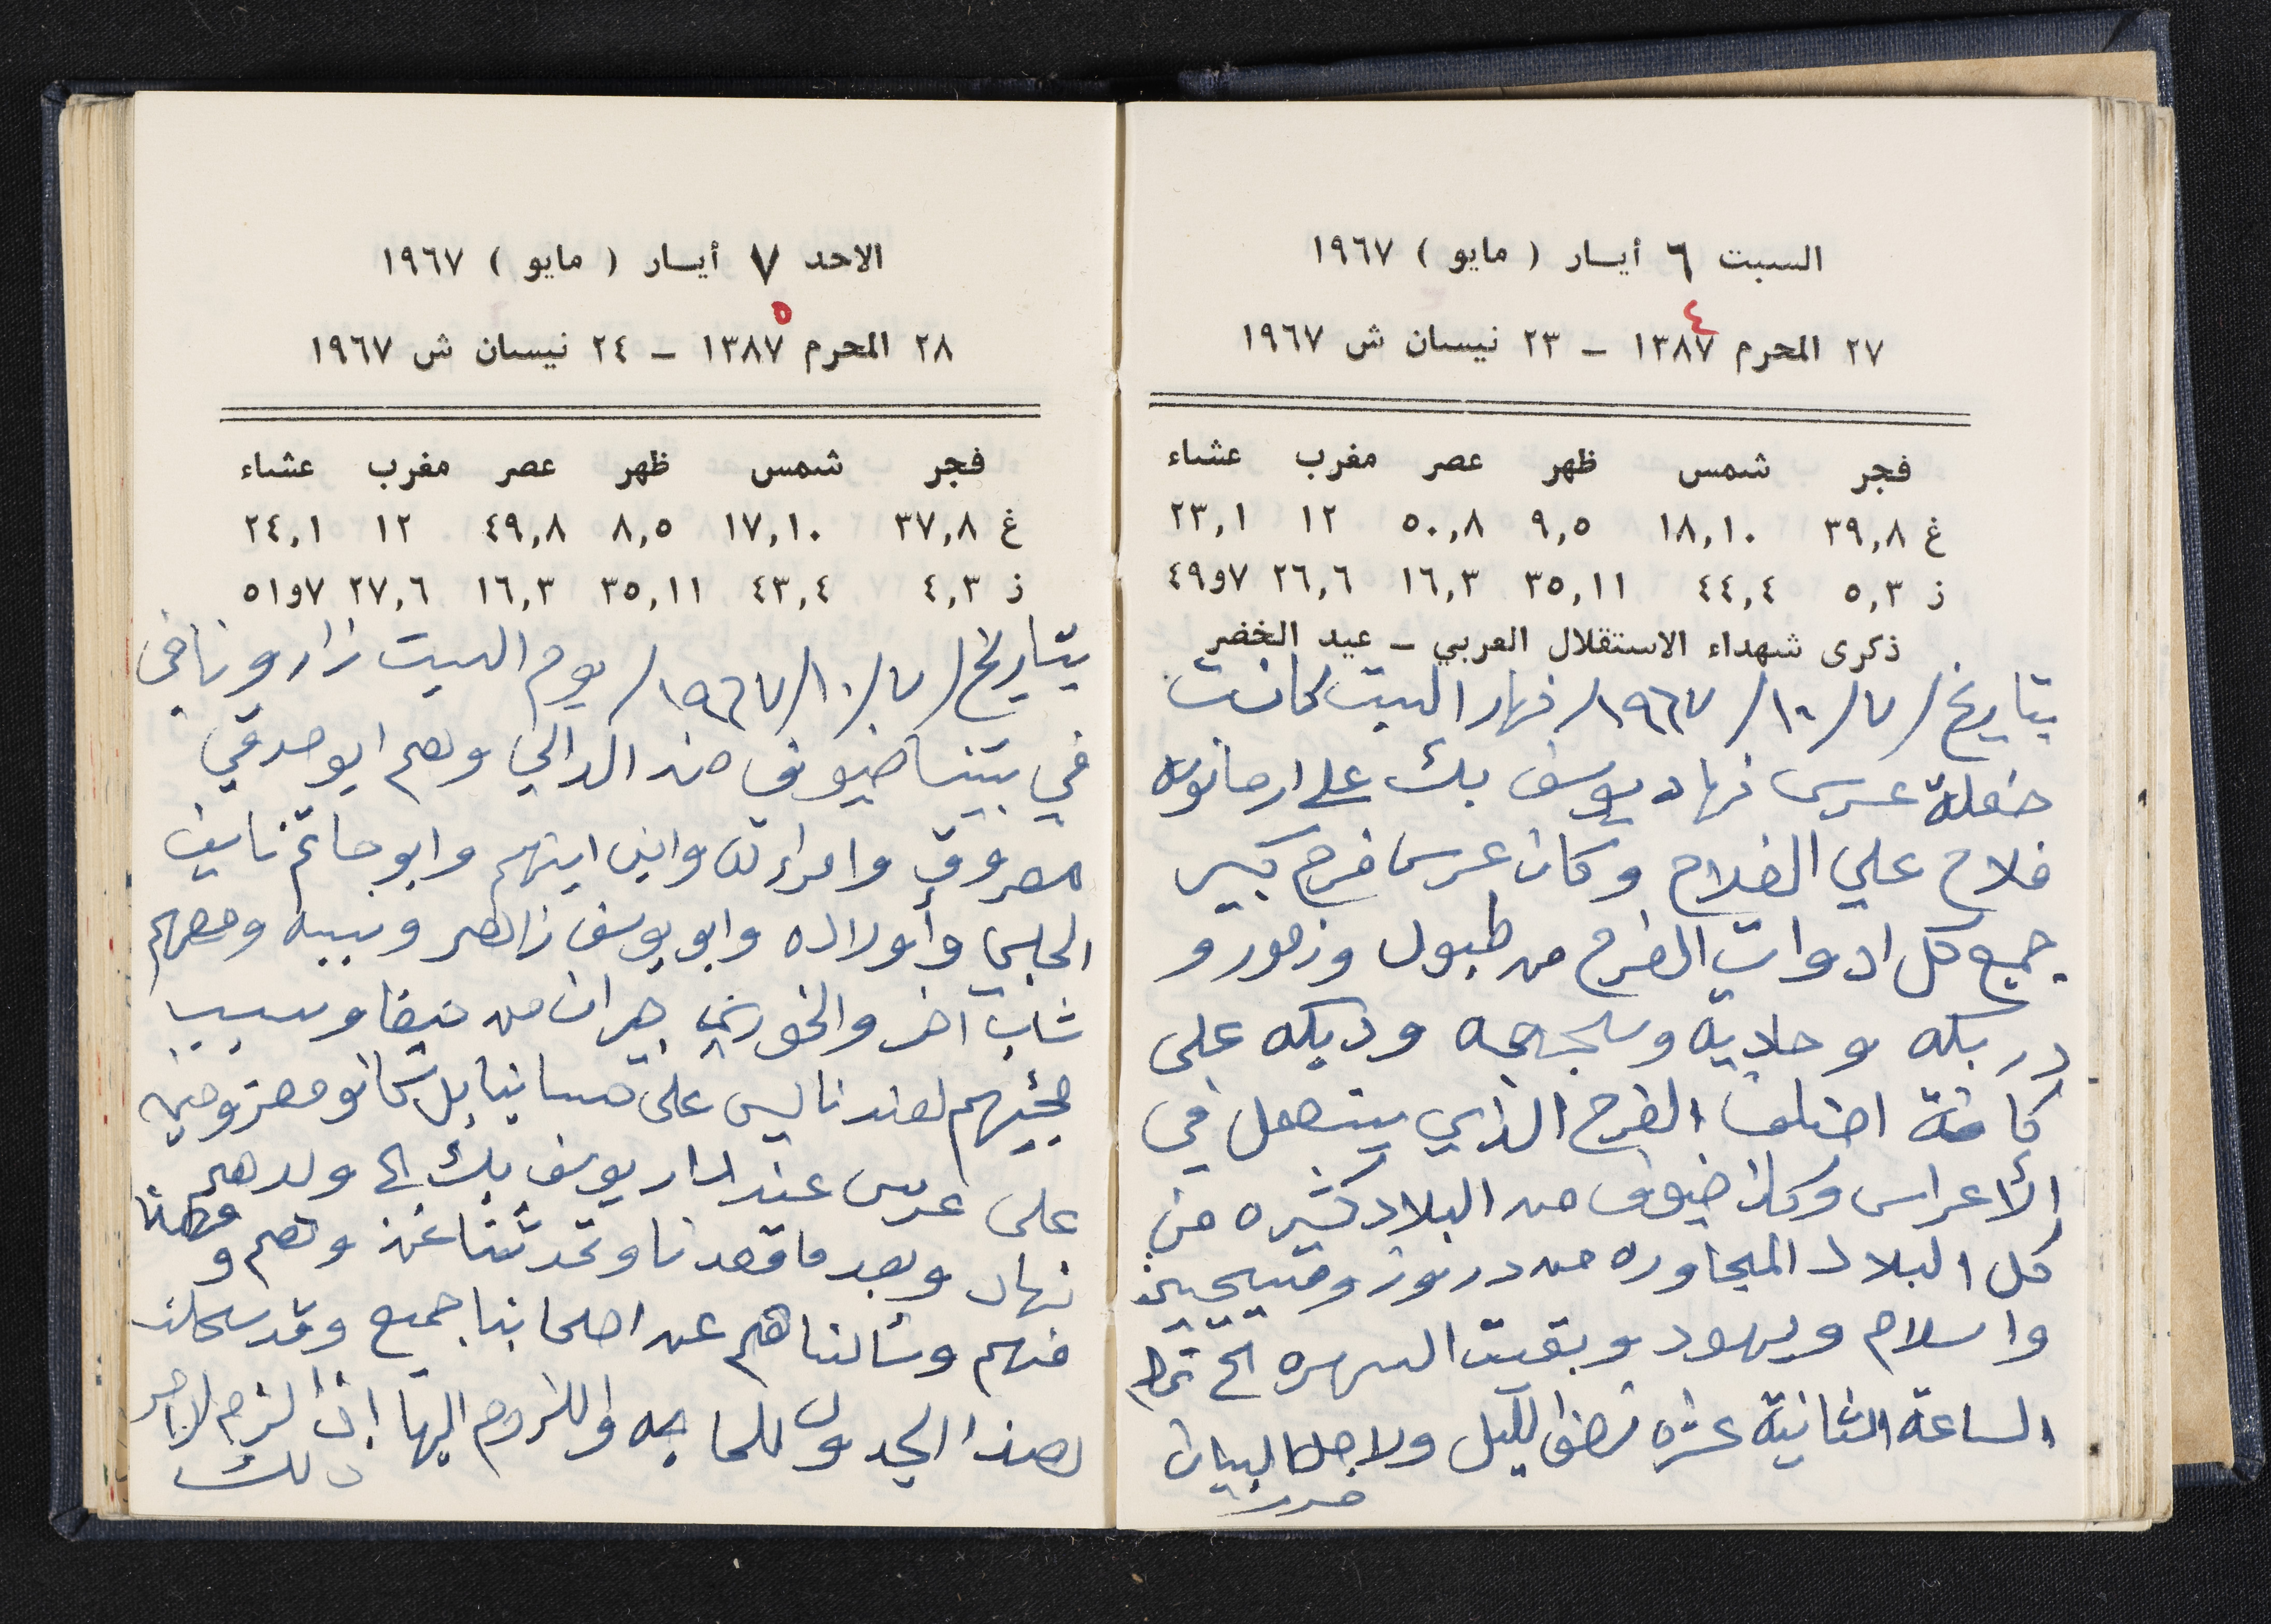 السبت ٦ أيار ( مايو ) ١٩٦٧
٤
٢٧ المحرم ١٣٨٧ – ٢٣ نيسان ش ١٩٦٧
فجر شمس ظهر عصر مغرب عشاء
غ ٣٩,٨ ١٨,١٠ ٩,٥ ٥٠,٨ ١٢ ٢٣,١
ز ٥,٣ ٤٤,٤ ٣٥,١١ ١٦,٣ ٢٦,٦ ٧و٤٩
ذكرى شهداء الاستقلال العربي – عيد الخضر
بتاريخ /٧/ ١٠/ ١٩٦٧/ نهار السبت كانت
حفلة عرس نهاد يوسف بك على
فلاح علي الفلاح وكان عرس فرح كبير
جميع كل ادوات الفرح من طبول وزمور و
دربكه وحاديه وسحجه ودبكه على
كافة اختلف الفرح الذي بينعمل في
الأعراس وكان ضيوف من البلاد كثيره من
كل البلاد المجاوره من دروز ومسيحيين
واسلام ويهود وبقيت السهره الى تمام
الساعة الثانية عشره نصف الليل ولاجل البيان
حرر
الاحد ٧ أيار ( مايو ) ١٩٦٧
٥
٢٨ المحرم ١٣٨٧ – ٢٤ نيسان ش ١٩٦٧
فجر شمس ظهر عصر مغرب عشاء
غ ٣٧,٨ ١٧,١٠ ٨,٥ ٤٩,٨ ١٢ ٢٤,١
ز ٤,٣ ٤٣,٤ ٣٥,١١ ١٦,٣ ٢٧,٦ ٧و٥١
بتاريخ /٧/ ١٠/ ١٩٦٧/ يوم السبت زارونا في
في بيتنا ضيوف من الدالي وهم ابو صدقي
معروف وامراءته وابن ابنهم وابو حاتم نايف
الحلبي وأولاده وابو يوسف زاهر وبيبه ومعهم
شاب آخر والخوري جبران من حيفا وسبب
مجيئهم لعندنا ليس على حسابنا بل كانو معزومين
على عرس عند دار يوسف بك الى ولدهم
نهاد وبعد ما قعدنا وتحدثنا نحن وهم و
منهم وسألناهم عن اصحابنا جميع وقد سجلت
لهذا الجدول للحاجه واللزوم اليها اذا لزم الامر
ذلك